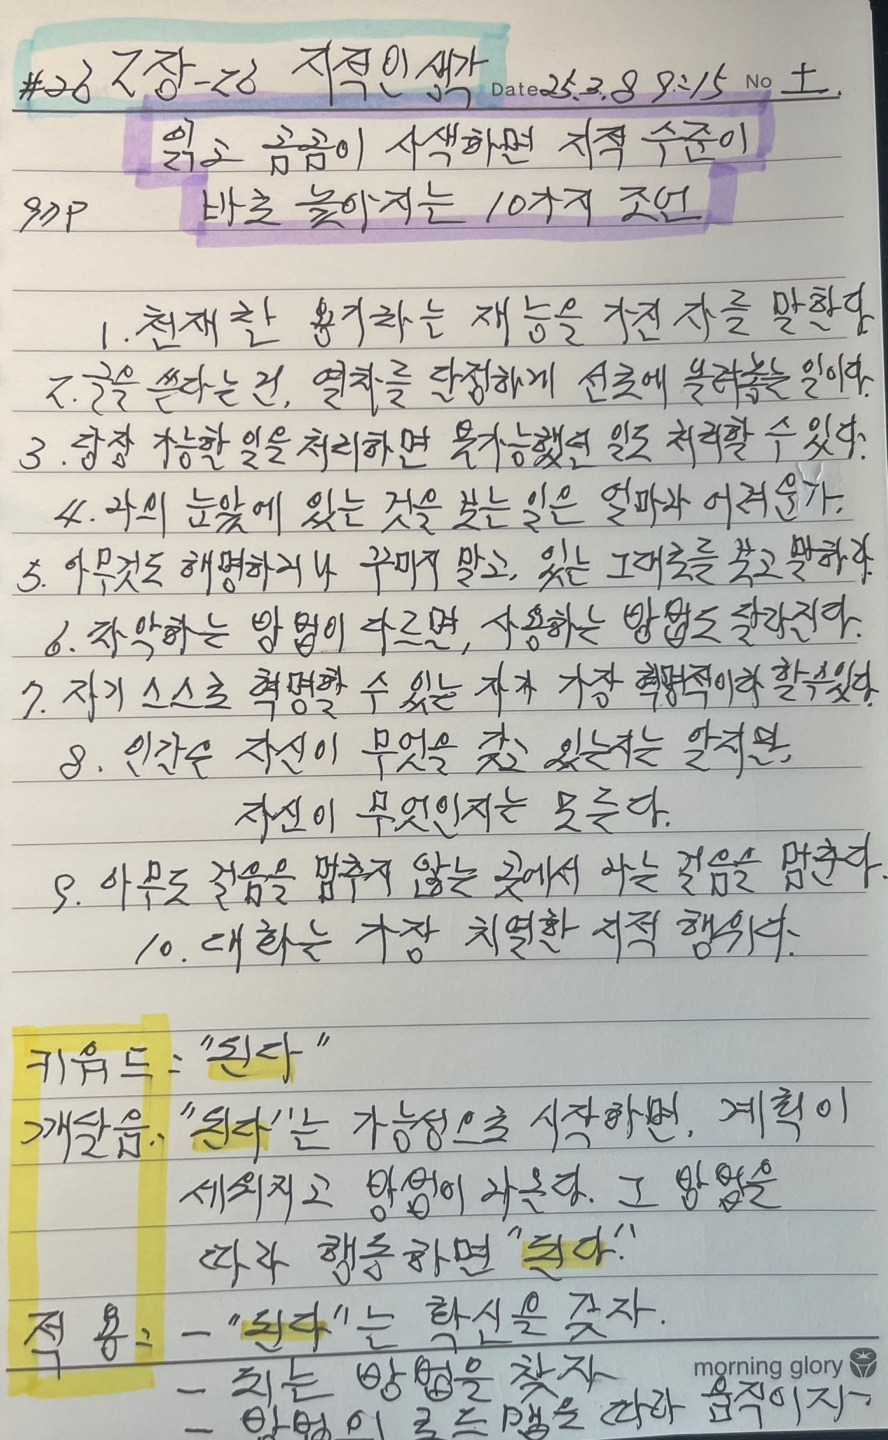 #26 2장-26 지적인 생각 Date 25.2.8 9:15 No 土.
읽고 곰곰이 사색하면 지적 수준이
97P 바로 높아지는 10가지 조언
1. 천재란 용기라는 재능을 가진 자를 말한다
2. 글을 쓴다는 건, 열차를 단정하게 선로에 올려놓는 일이다.
3. 당장 가능한 일을 처리하면 불가능했던 일도 처리할 수 있다.
4. 나의 눈앞에 있는 것을 찾는 일은 얼마나 어려운가.
5. 아무것도 해명하거나 꾸미지 말고, 있는 그대로를 보고 말하라
6. 자악하는 방법이 다르면, 사용하는 방법도 달라진다.
7. 자기 스스로 혁명할 수 있는 자가 가장 혁명적이라 할 수 있다.
8. 인간은 자신이 무엇을 갖고 있는지는 알지만,
자신이 무엇인지는 모른다.
9. 아무도 걸음을 멈추지 않는 곳에서 나는 걸음을 멈춘다.
10. 대화는 가장 치열한 지적 행위다.
키워드: "된다"
깨달음: "된다"는 가능성으로 시작하면, 계획이
세워지고 방법이 나온다. 그 방법을
따라 행동하면 "된다".
적용: - "된다"는 확신을 갖자.
- 되는 방법을 찾자
- 방법의 로드맵을 따라 움직이자
morning glory